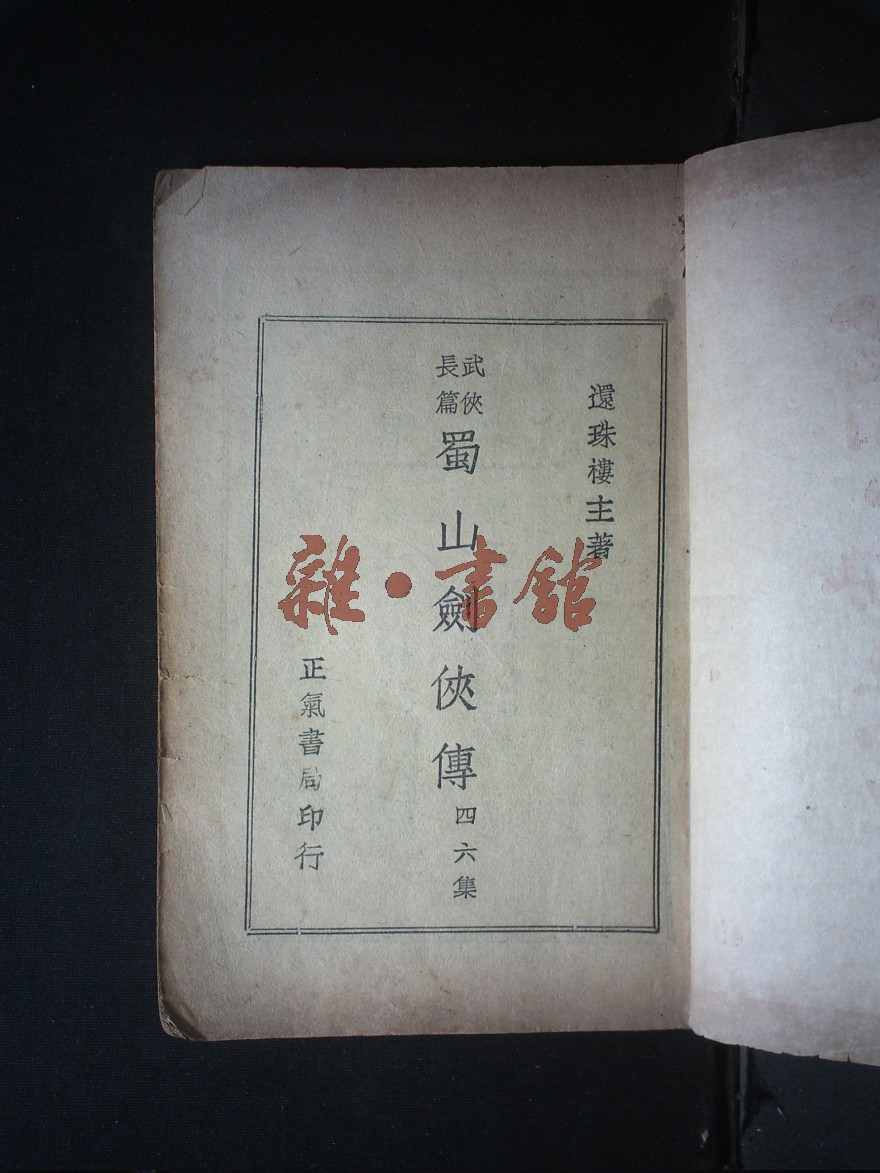 還珠樓主著
武俠
長篇
蜀山劍俠傳
四六集
正氣書局印行
雜·書館